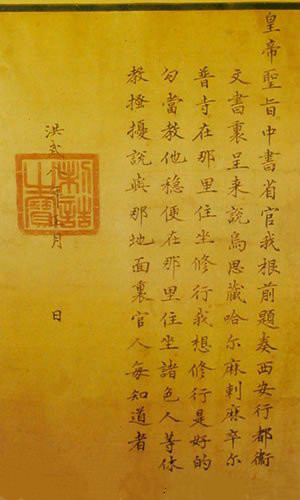 皇帝聖旨中書省官我根前題奏西安行都衛
文書裏呈来說烏思藏哈尔麻剌麻卒尔
普寺在那里住坐修行我想修行是好的
勾當教他穩便在那里住坐諸色人等休
教搔擾說與那地面裏官人每知道者
洪武年月 日
制誥之寶